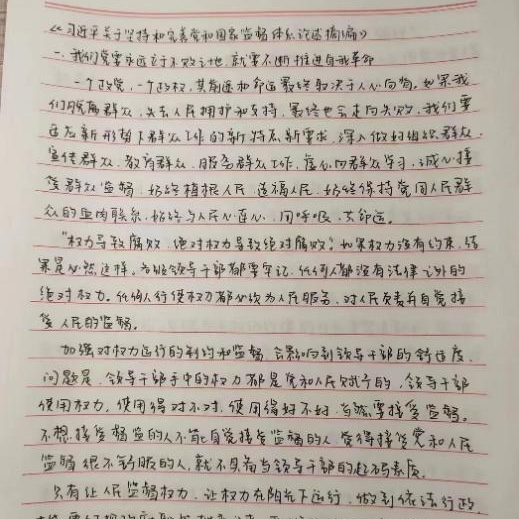 《习近平关于坚持和完善党和国家监督体系论述摘编》
一、我们党要永远立于不败之地，就要不断推进自我革命
一个政党，一个政权，其前途和命运最终取决于人心向背。如果我
们脱离群众、失去人民拥护和支持，最终也会走向失败。我们要
适应新形势下群众工作的新特点新要求，深入做好组织群众、
宣传群众、教育群众、服务群众工作，虚心向群众学习，诚心接
受群众监督，始终植根人民、造福人民，始终保持党同人民群
众的血肉联系，始终与人民心连心、同呼吸、共命运。
"权力导致腐败，绝对权力导致绝对腐败。"如果权力没有约束，结
果是必然这样。各级领导干部都要牢记，任何人都没有法律之外的
绝对权力。任何人行使权力都必须为人民服务、对人民负责并自觉接
受人民的监督。
加强对权力运行的制约和监督，会影响到领导干部的舒适度。
问题是，领导干部手中的权力都是党和人民赋予的，领导干部
使用权力，使用得对不对，使用得好不好，当然要接受监督。
不想接受督监的人不能自觉接受监督的人，觉得接受党和人民
监督很不舒服的人，就不具备当领导干部的起码素质。
只有让人民监督权力，让权力在阳光下运行，做到依法行政，